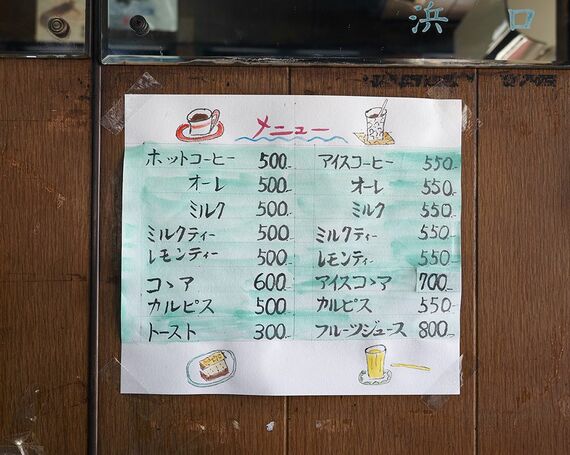 浜 口
メニュー
ホットコーヒー 500.-
オーレ 500.-
ミルク 500.-
ミルクティー 500.-
レモンティー 500.-
コヽア 600.-
カルピス 500.-
トースト 300.-
アイスコーヒー 550.-
オーレ 550.-
ミルク 550.-
ミルクティー 550.-
レモンティー 550.-
アイスコヽア 700.-
カルピス 550.-
フルーツジュース 800.-